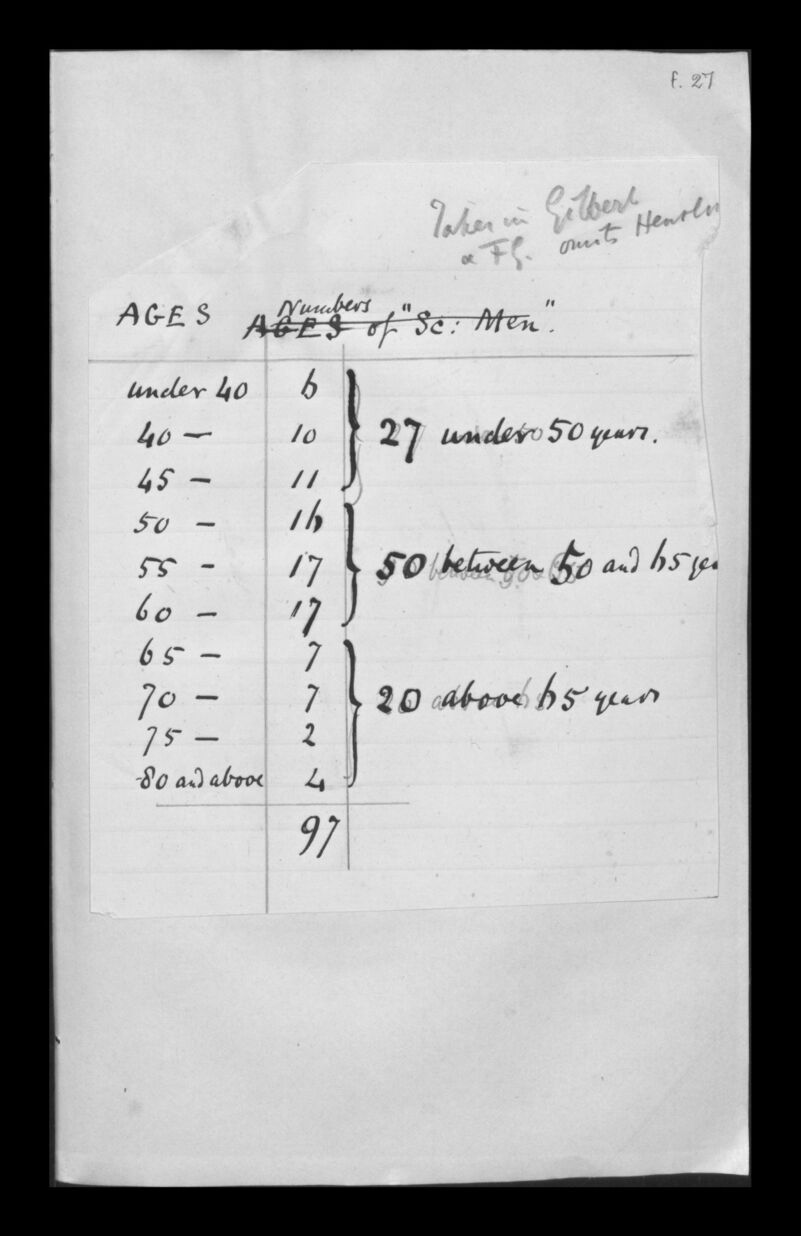 f. 27
Takes in Gilbert
& FG. omits Henslow
AGES Numbers
AGES of "Sc: Men".
under 40 6
40 — 10 27 under 50 years.
45 — 11
50 — 16
55 - 17 50 between 50 and 65 yea
60 — 17
65 — 7
70 — 7 20 above 65 years
75 — 2
80 and above 4
97